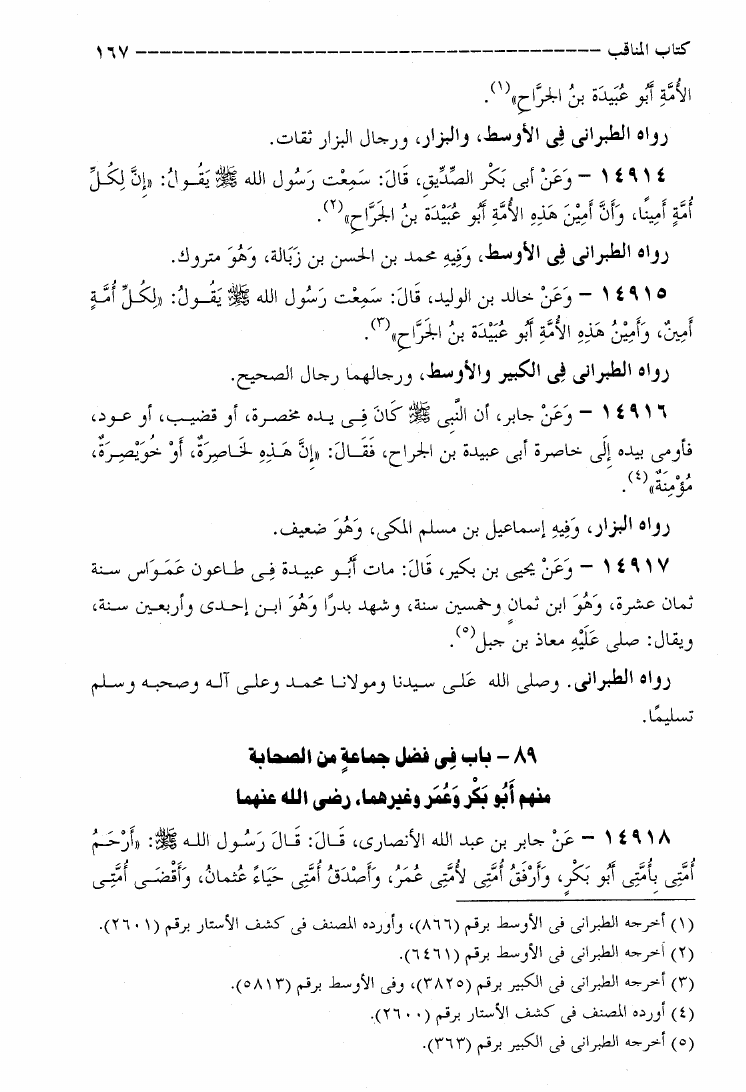 كتاب المناقب ------------------------------------------ ١٦٧
الأُمَّةِ أَبُو عُبَيْدَة بنُ الجَرَّاحِ»(١).
رواه الطبرانى فِى الأوسط، والبزار، ورجال البزار ثقات.
١٤٩١٤ – وَعَنْ أبى بَكْر الصِّدِّيقِ، قَالَ: سَمِعْت رَسُول الله ﷺ يَقُولُ: «إِنَّ لِكُلِّ
أُمَّةٍ أَمِينًا، وَأَنَّ أَمِيْنَ هَذِهِ الأُمَّةِ أَبُو عُبَيْدَة بنُ الجَرَّاحِ»(٢).
رواه الطبرانى فِى الأوسط، وَفِيهِ محمد بن الحسن بن زَبَالة، وَهُوَ متروك.
١٤٩١٥ – وَعَنْ خالد بن الوليد، قَالَ: سَمِعْت رَسُول الله ﷺ يَقُولُ: «لِكُلِّ أُمَّةٍ
أَمِينٌ، وَأَمِيْنُ هَذِهِ الأُمَّةِ أَبُو عُبَيْدَة بنُ الجَرَّاحِ»(٣).
رواه الطبرانى فِى الكبير والأوسط، ورجالهما رجال الصحيح.
١٤٩١٦ – وَعَنْ جابر، أن النَّبِى ﷺ كَانَ فِى يده مخصرة، أو قضيب، أو عود،
فأومى بيده إِلَى خاصرة أبى عبيدة بن الجراح، فَقَالَ: «إِنَّ هَذِهِ لَخَاصِرَةٌ، أَوْ خُوَيْصِرَةٌ،
مُؤْمِنَةٌ»(٤).
رواه البزار، وَفِيهِ إسماعيل بن مسلم المكى، وَهُوَ ضعيف.
١٤٩١٧ – وَعَنْ يحيى بن بكير، قَالَ: مات أَبُو عبيدة فِى طاعون عَمَوَاس سنة
ثمان عشرة، وَهُوَ ابن ثمانٍ وخمسين سنة، وشهد بدرًا وَهُوَ ابن إحدى وأربعين سنة،
ويقال: صلى عَلَيْهِ معاذ بن جبل(٥).
رواه الطبرانى. وصلى الله عَلَى سيدنا ومولانا محمد وعلى آله وصحبه وسلم
تسليمًا.
٨٩ – باب فِى فضل جماعةٍ من الصحابة
منهم أَبُو بَكْر وَعُمَر وغيرهما، رضى الله عنهما
١٤٩١٨ – عَنْ جابر بن عبد الله الأنصارى، قَالَ: قَالَ رَسُول الله ﷺ: «أَرْحَمُ
أُمَّتِى بِأُمَّتِى أَبُو بَكْرٍ، وَأَرْفَقُ أُمَّتِى لأُمَّتِى عُمَرُ، وَأَصْدَقُ أُمَّتِى حَيَاءً عُثمانُ، وَأَقْضَى أُمَّتِى
(١) أخرجه الطبرانى فى الأوسط برقم (٨٦٦)، وأورده المصنف فى كشف الأستار برقم (٢٦٠١).
(٢) أخرجه الطبرانى فى الأوسط برقم (٦٤٦١).
(٣) أخرجه الطبرانى فى الكبير برقم (٣٨٢٥)، وفى الأوسط برقم (٥٨١٣).
(٤) أورده المصنف فى كشف الأستار برقم (٢٦٠٠).
(٥) أخرجه الطبرانى فى الكبير برقم (٣٦٣).